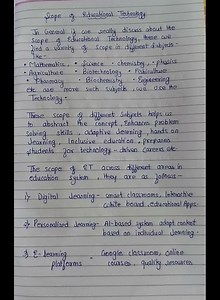 Scope of Educational Technology
In General if we really discuss about the
Scope of Educational Technology, then we
find a variety of scope in different subjects
like -
• Mathematics, • Science • chemistry, • physics
• Agriculture • Biotechnology • Pisciculture
• Pharmacy • Biochemistry • Engineering
etc are more such subjects, we use the
Technology.
These scope of different subjects helps us
to abstract the concept, enhances problem
solving skills, adaptive learning, hands on
learning, inclusive education, prepares
students for technology - driven careers etc
The scope of ET across different areas in
education system, they are as follows -
1) Digital Learning - smart classrooms, interactive
white board, educational Apps.
2) Personalised Learning: AI-based system adapt content
based on individual learning.
3) E-Learning - Google classroom, online
platforms courses, quality resources.